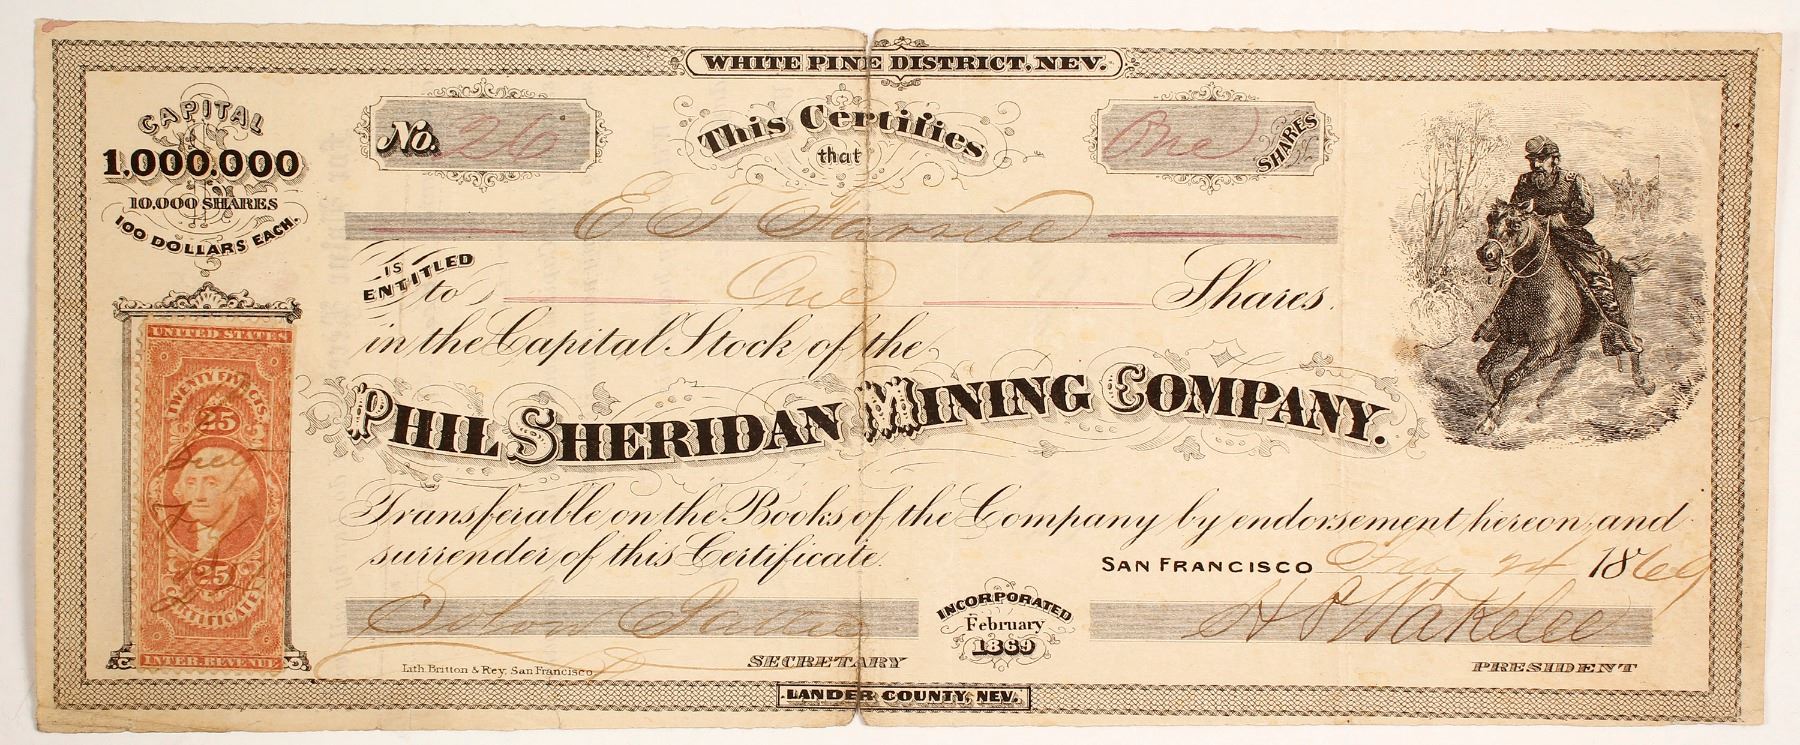 WHITE PINE DISTRICT, NEV.
CAPITAL
1.000.000
10,000 SHARES
100 DOLLARS EACH.
No. 26
This Certifies
that
One SHARES
E T
IS
ENTITLED
to One Shares.
in the Capital Stock of the
PHIL SHERIDAN MINING COMPANY.
Transferable on the Books of the Company by endorsement hereon, and
surrender of this Certificate.
SAN FRANCISCO 24 1869
INCORPORATED
February
1869
SECRETARY
H P Wakelee
PRESIDENT
Lith. Britton & Rey, San Francisco
LANDER COUNTY, NEV.
UNITED STATES
TWENTY FIVE CTS.
25
25
CERTIFICATE
INTER. REVENUE